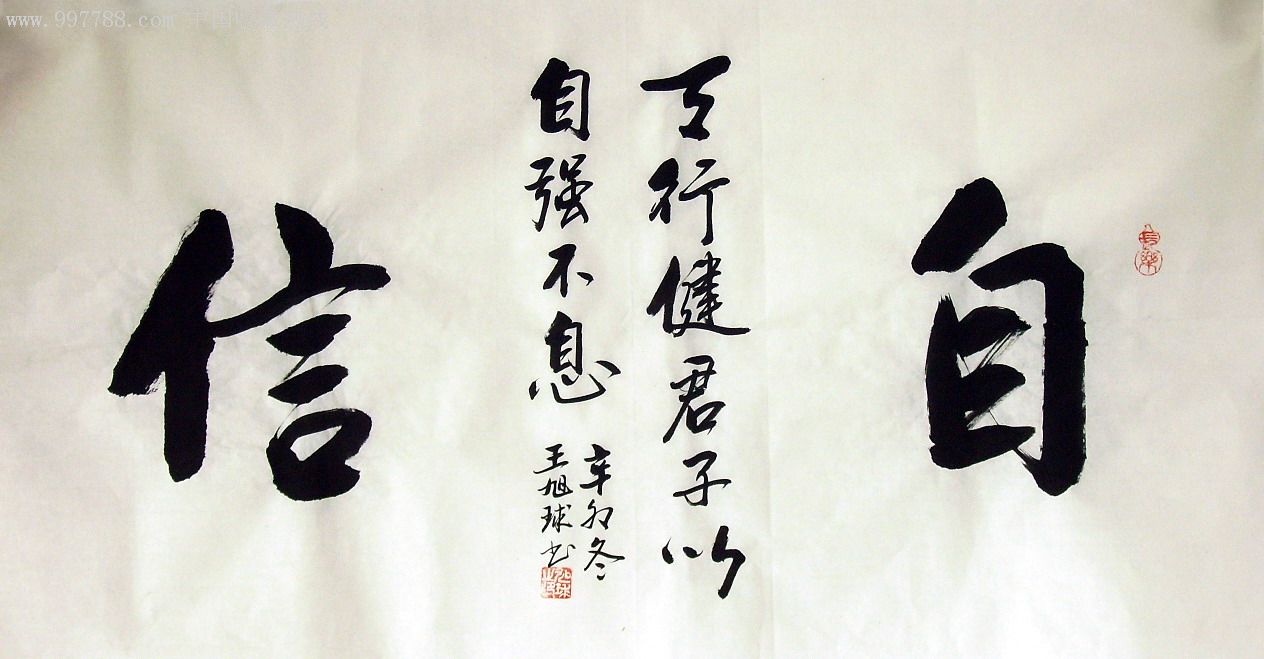 自
天行健君子以
自强不息
信
辛卯冬
王旭球书
长乐
www.997788.com